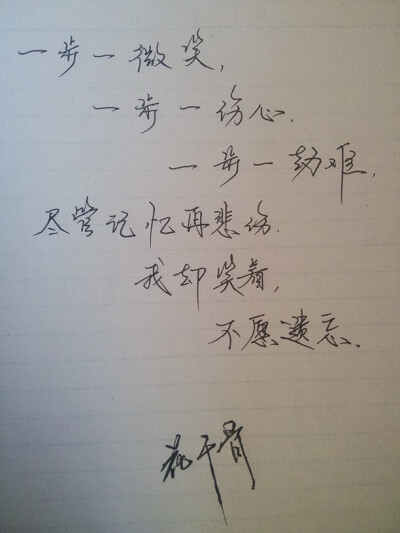 一步一微笑,
一步一伤心.
一步一劫难,
尽管记忆再悲伤.
我却笑着,
不愿遗忘.
花千骨